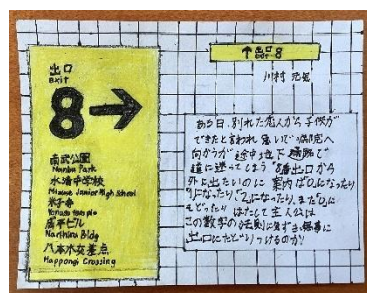 出口
Exit
8→
南武公園
Nanbu Park
水清中学校
Mizukiyo Junior High School
米子寺
Yonago temple
成平ビル
Narihira Bldg
八本木交差点
Happongi Crossing
↑出口8
川村 元気
ある日、別れた恋人から子供が
できたと言われ急いで病院へ
向かうが途中の地下通路で
道に迷ってしまう 8番出口から
外に出たいのに 案内が0になったり
1になったり、2になったり、また0に
もどったり はたして主人公は
この数字の法則に気ずき、無事に
出口にたどりつけるのか!